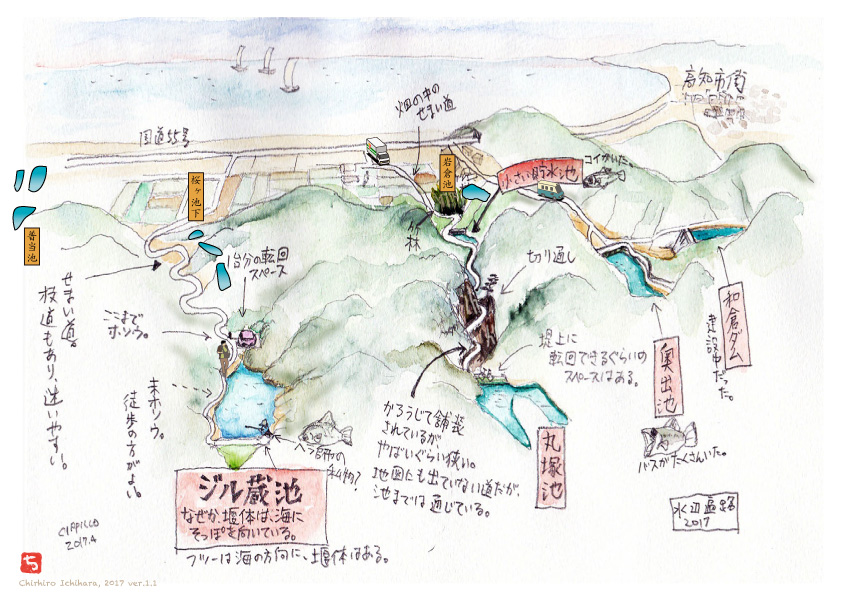 高知市街
畑の中の
せまい道
国道55号
岩倉池
小さい貯水池
コイがいた。
桜ヶ池下
普当池
竹林
1台分の転回
スペース
切り通し
せまい道。
枝道もあり、迷いやすい。
ここまで
ホソウ。
堤上に
転回できるぐらいの
スペースはある。
和倉ダム
建設中だった。
奥出池
未ホソウ。
徒歩の方がよい。
かろうじて舗装
されているが
やばいぐらい狭い。
地図にも出ていない道だが、
池までは通じている。
丸塚池
バスがたくさんいた。
ヘラ師の
私物?
ジル蔵池
なぜか、堰体は、海に
そっぽを向いている。
フツーは海の方向に、土堰体はある。
水辺遍路
2017
CIPPILLO
2017.4
ち
Chirhiro Ichihara, 2017 ver.1.1